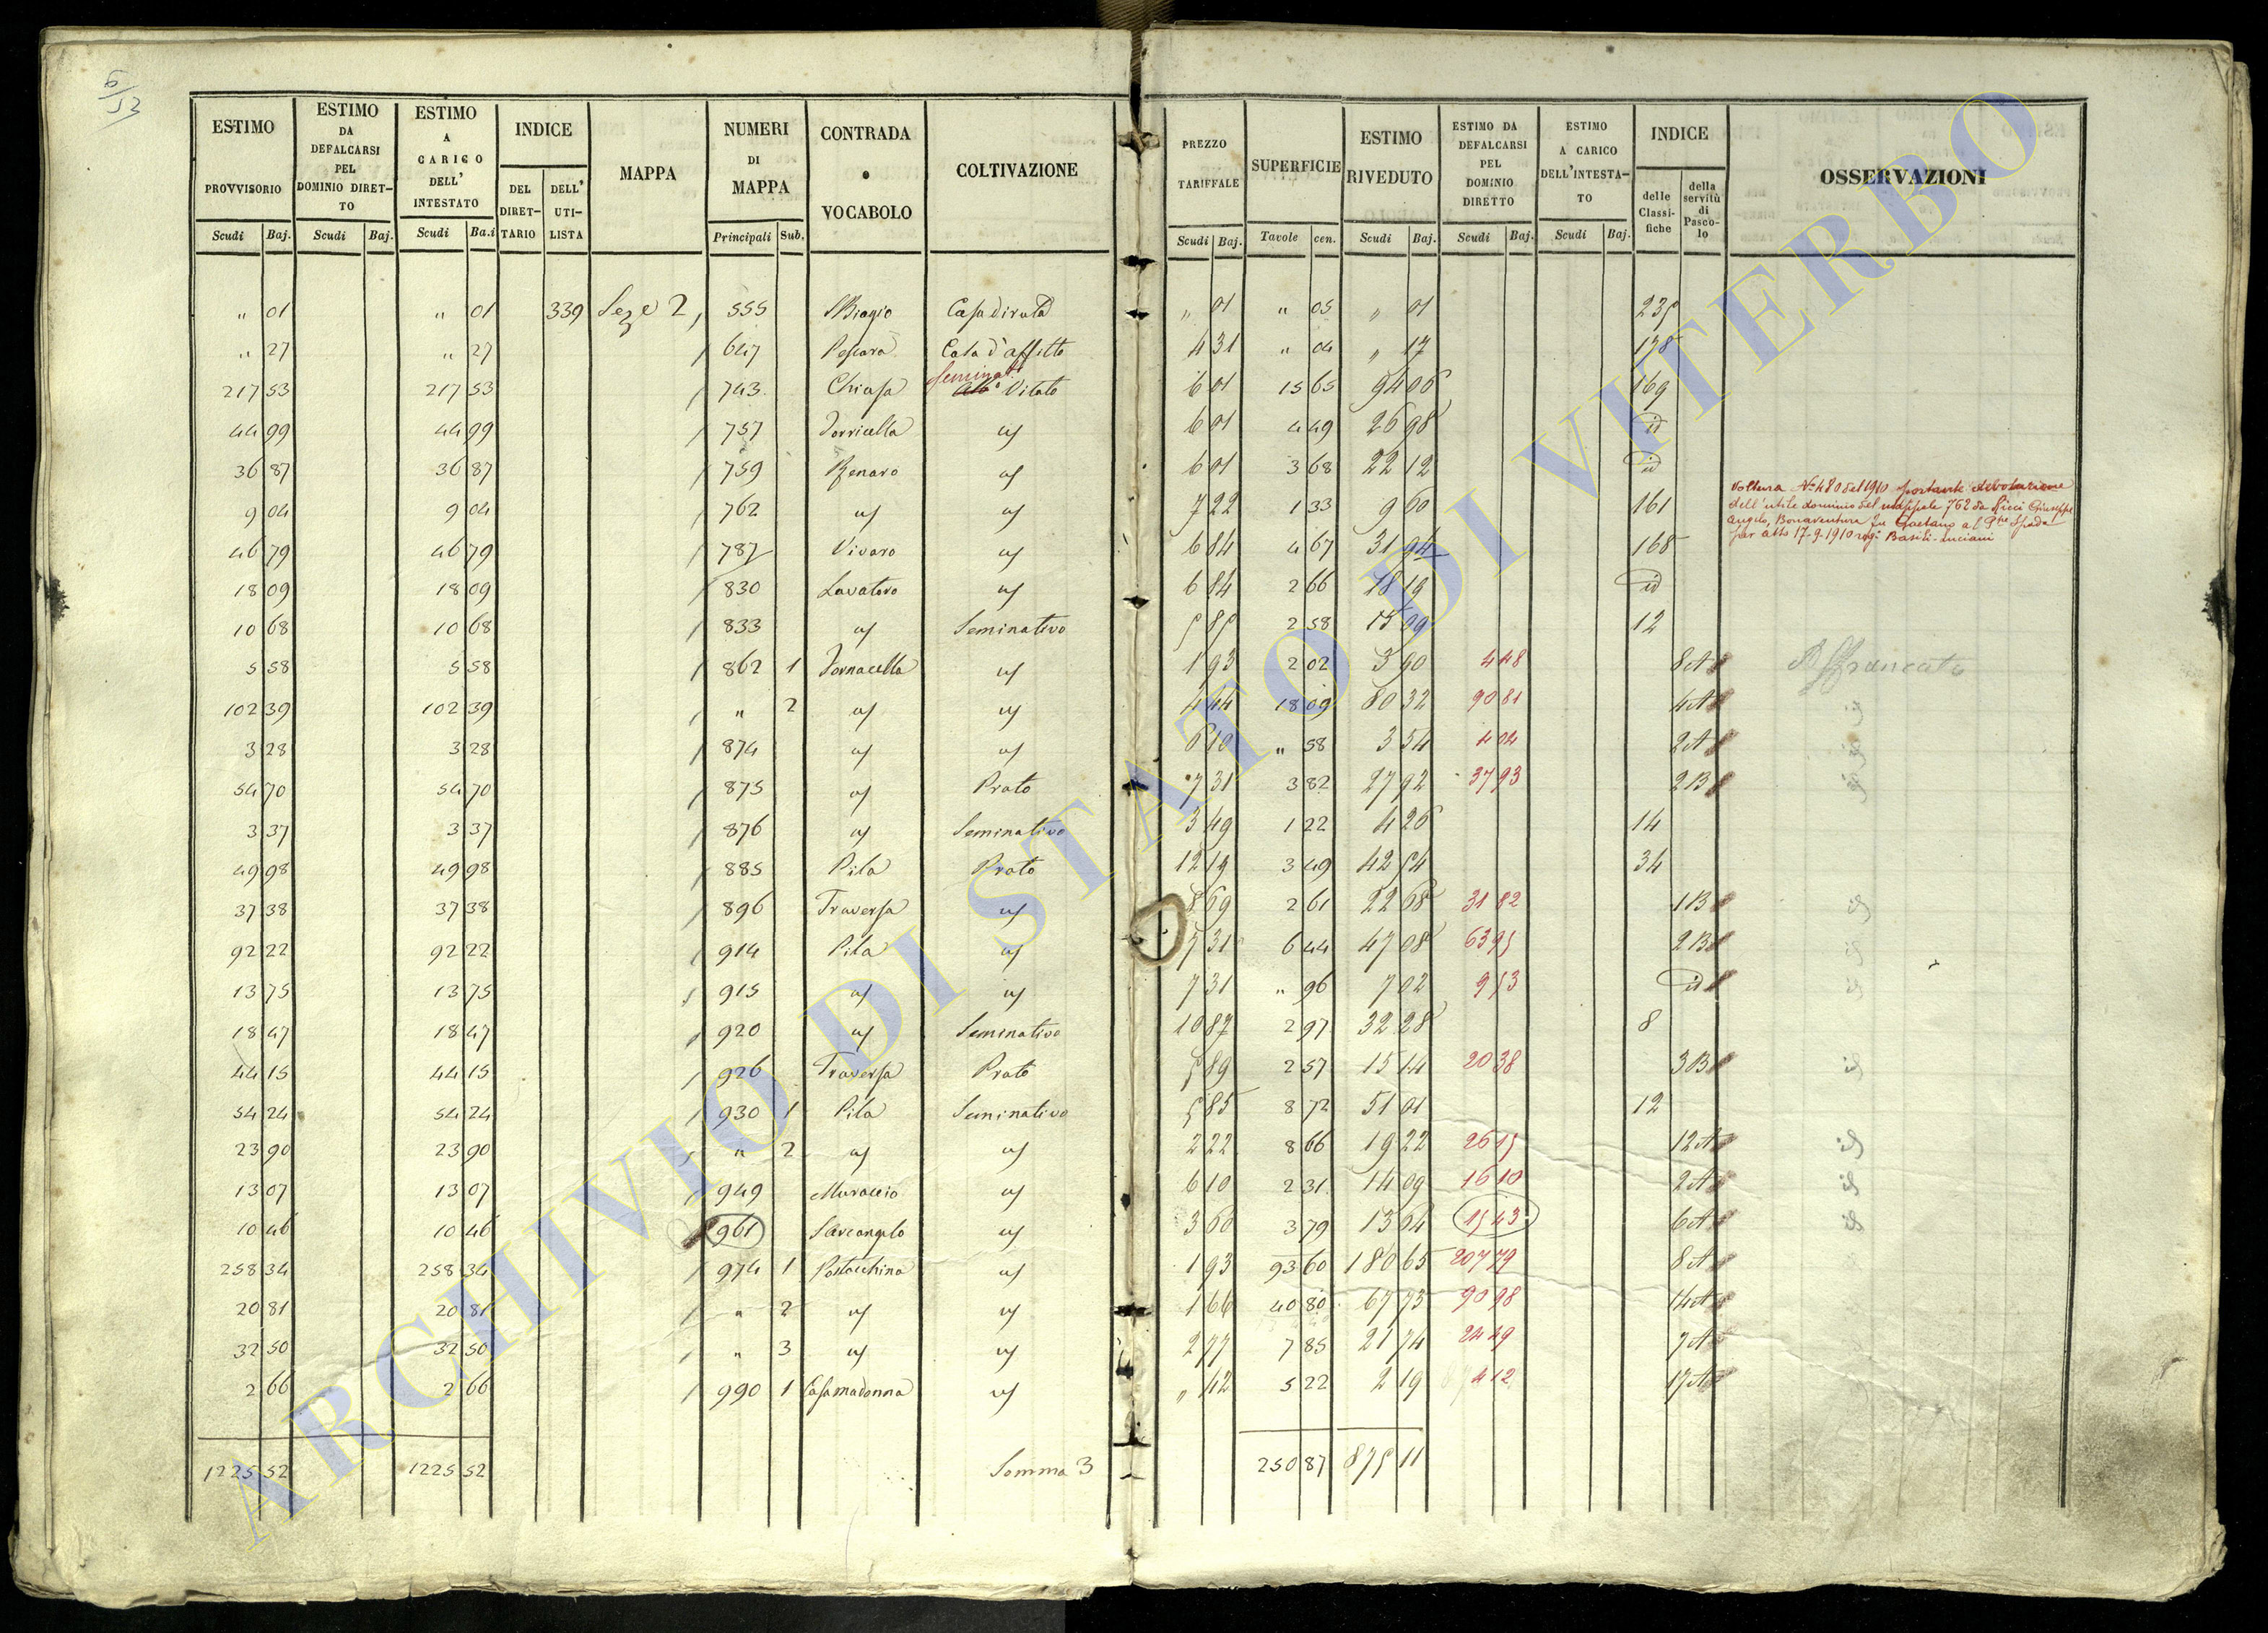 6/53
ESTIMO PROVVISORIO | ESTIMO DA DEFALCARSI PEL DOMINIO DIRET-TO | ESTIMO A CARICO DELL' INTESTATO | INDICE | MAPPA | NUMERI DI MAPPA | CONTRADA o VOCABOLO | COLTIVAZIONE | PREZZO TARIFFALE | SUPERFICIE | ESTIMO RIVEDUTO | ESTIMO DA DEFALCARSI PEL DOMINIO DIRETTO | ESTIMO A CARICO DELL'INTESTA-TO | INDICE | OSSERVAZIONI
DEL DIRET-TARIO | DELL' UTI-LISTA | delle Classi-fiche | della servitù di Pasco-lo
Scudi | Baj. | Scudi | Baj. | Scudi | Ba.i | Principali | Sub. | Scudi | Baj. | Tavole | cen. | Scudi | Baj. | Scudi | Baj. | Scudi | Baj.
" 01 | " 01 | 339 | Seze 2 | 555 | S Biagio | Casa diruta | " 01 | " 05 | " 01 | 235
" 27 | " 27 | 647 | Pescara | Casa d'affitto | 4 31 | " 04 | " 17 | 178
217 53 | 217 53 | 743 | Chiusa | Seminat Alb° Vitato | 6 01 | 15 65 | 94 06 | 169
44 99 | 44 99 | 757 | Torricella | uj | 6 01 | 4 49 | 26 98 | id
36 87 | 36 87 | 759 | Renaro | uj | 6 01 | 3 68 | 22 12 | id
9 04 | 9 04 | 762 | uj | uj | 7 22 | 1 33 | 9 60 | 161 | Voltura N° 480 del 1910 portante devoluzione
dell'utile dominio del mappale 762 da Ricci Giuseppe
Angelo, Bonaventura fu Gaetano al Pne Spada
per atto 17-9-1910 rogi Basili-Luciani
46 79 | 46 79 | 787 | Vivaro | uj | 6 84 | 4 67 | 31 94 | 168
18 09 | 18 09 | 830 | Lavatoro | uj | 6 84 | 2 66 | 18 19 | id
10 68 | 10 68 | 833 | uj | Seminativo | 5 85 | 2 58 | 15 09 | 12
5 58 | 5 58 | 862 | 1 | Fornacella | uj | 1 93 | 2 02 | 3 90 | 4 48 | 8 A | Affrancato
102 39 | 102 39 | " | 2 | uj | uj | 4 44 | 18 09 | 80 32 | 90 81 | 4 A | id
3 28 | 3 28 | 874 | uj | uj | 6 10 | " 58 | 3 54 | 4 04 | 2 A | id
54 70 | 54 70 | 875 | uj | Prato | 7 31 | 3 82 | 27 92 | 37 93 | 2 B | id
3 37 | 3 37 | 876 | uj | Seminativo | 3 49 | 1 22 | 4 26 | 14
49 98 | 49 98 | 885 | Pila | Prato | 12 19 | 3 49 | 42 54 | 34
37 38 | 37 38 | 896 | Traversa | uj | 8 69 | 2 61 | 22 68 | 31 82 | 1 B | id
92 22 | 92 22 | 914 | Pila | uj | 7 31 | 6 44 | 47 08 | 63 95 | 2 B | id
13 75 | 13 75 | 915 | uj | uj | 7 31 | " 96 | 7 02 | 9 53 | id | id
18 47 | 18 47 | 920 | uj | Seminativo | 10 87 | 2 97 | 32 28 | 8
44 15 | 44 15 | 926 | Traversa | Prato | 5 89 | 2 57 | 15 14 | 20 38 | 3 B | id
54 24 | 54 24 | 930 | 1 | Pila | Seminativo | 5 85 | 8 72 | 51 01 | 12
23 90 | 23 90 | " | 2 | uj | uj | 2 22 | 8 66 | 19 22 | 26 15 | 12 A | id
13 07 | 13 07 | 949 | Muraccio | uj | 6 10 | 2 31 | 14 09 | 16 10 | 2 A | id
10 46 | 10 46 | 961 | S Arcangelo | uj | 3 60 | 3 79 | 13 64 | 15 43 | 6 A | id
258 34 | 258 34 | 974 | 1 | Pastacchina | uj | 1 93 | 93 60 | 180 65 | 207 79 | 8 A
20 81 | 20 81 | " | 2 | uj | uj | 1 66 | 40 80 | 67 73 | 90 98 | 14 A
32 50 | 32 50 | " | 3 | uj | uj | 2 77 | 7 85 | 21 74 | 24 49 | 7 A
2 66 | 2 66 | 990 | 1 | Casamadonna | uj | " 42 | 5 22 | 2 19 | 4 12 | 17 A
1225 52 | 1225 52 | Somma 3 | 250 87 | 875 11
ARCHIVIO DI STATO DI VITERBO